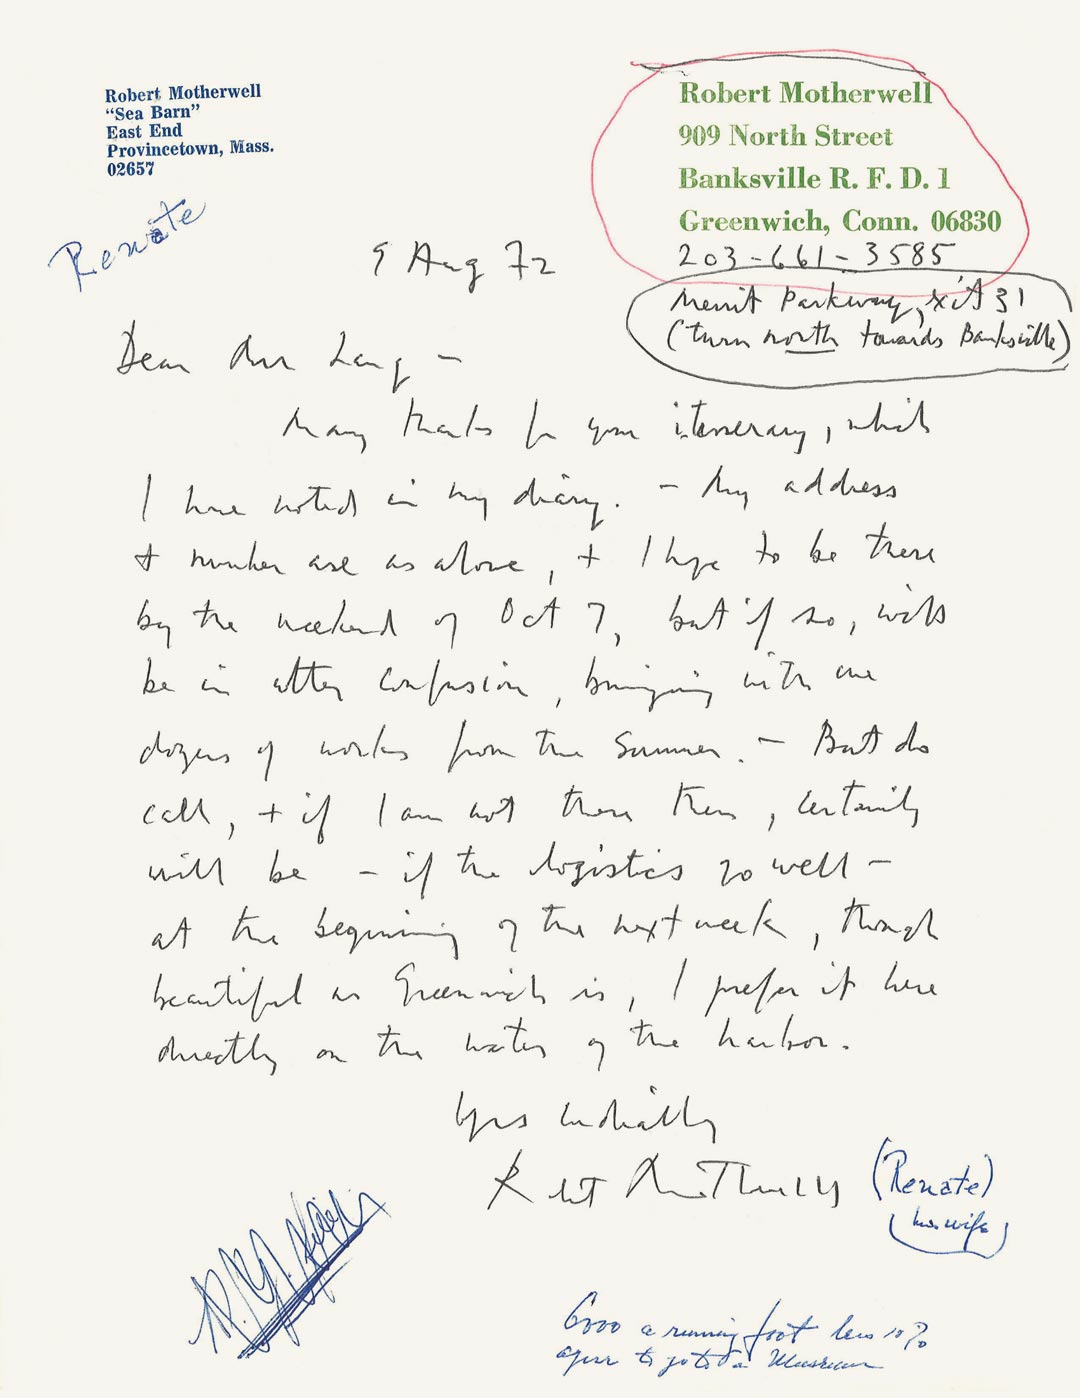 Robert Motherwell
"Sea Barn"
East End
Provincetown, Mass.
02657
Robert Motherwell
909 North Street
Banksville R. F. D. 1
Greenwich, Conn. 06830
203-661-3585
Merrit Parkway, xit 31
(turn north towards Banksville)
Renate
9 Aug 72
Dear Mr Lang –
Many thanks for your itinerary, which
I have noted in my diary. – My address
+ number are as above, + I hope to be there
by the weekend of Oct 7, but if so, will
be in utter confusion, bringing with me
dozens of works from the summer. – But do
call, + if I am not there then, certainly
will be – if the logistics go well –
at the beginning of the next week, though
beautiful as Greenwich is, I prefer it here
directly on the water of the harbor.
Yrs cordially
Robt Motherwell
(Renate)
(his wife)
6000 a running foot less 10%
agree to go to a Museum